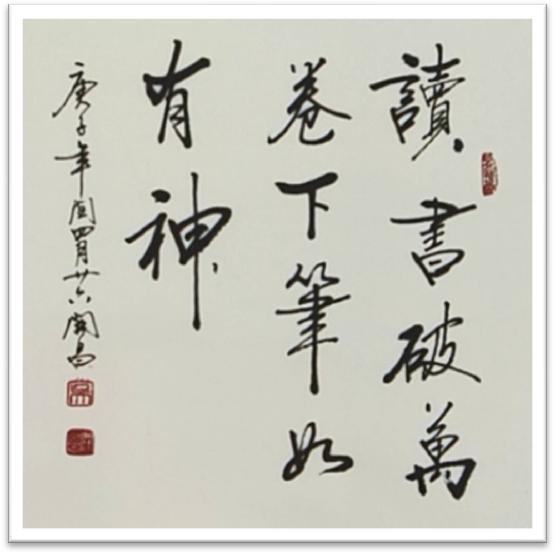 讀書破萬
卷下筆如
有神
庚子年闰四月廿六開昌